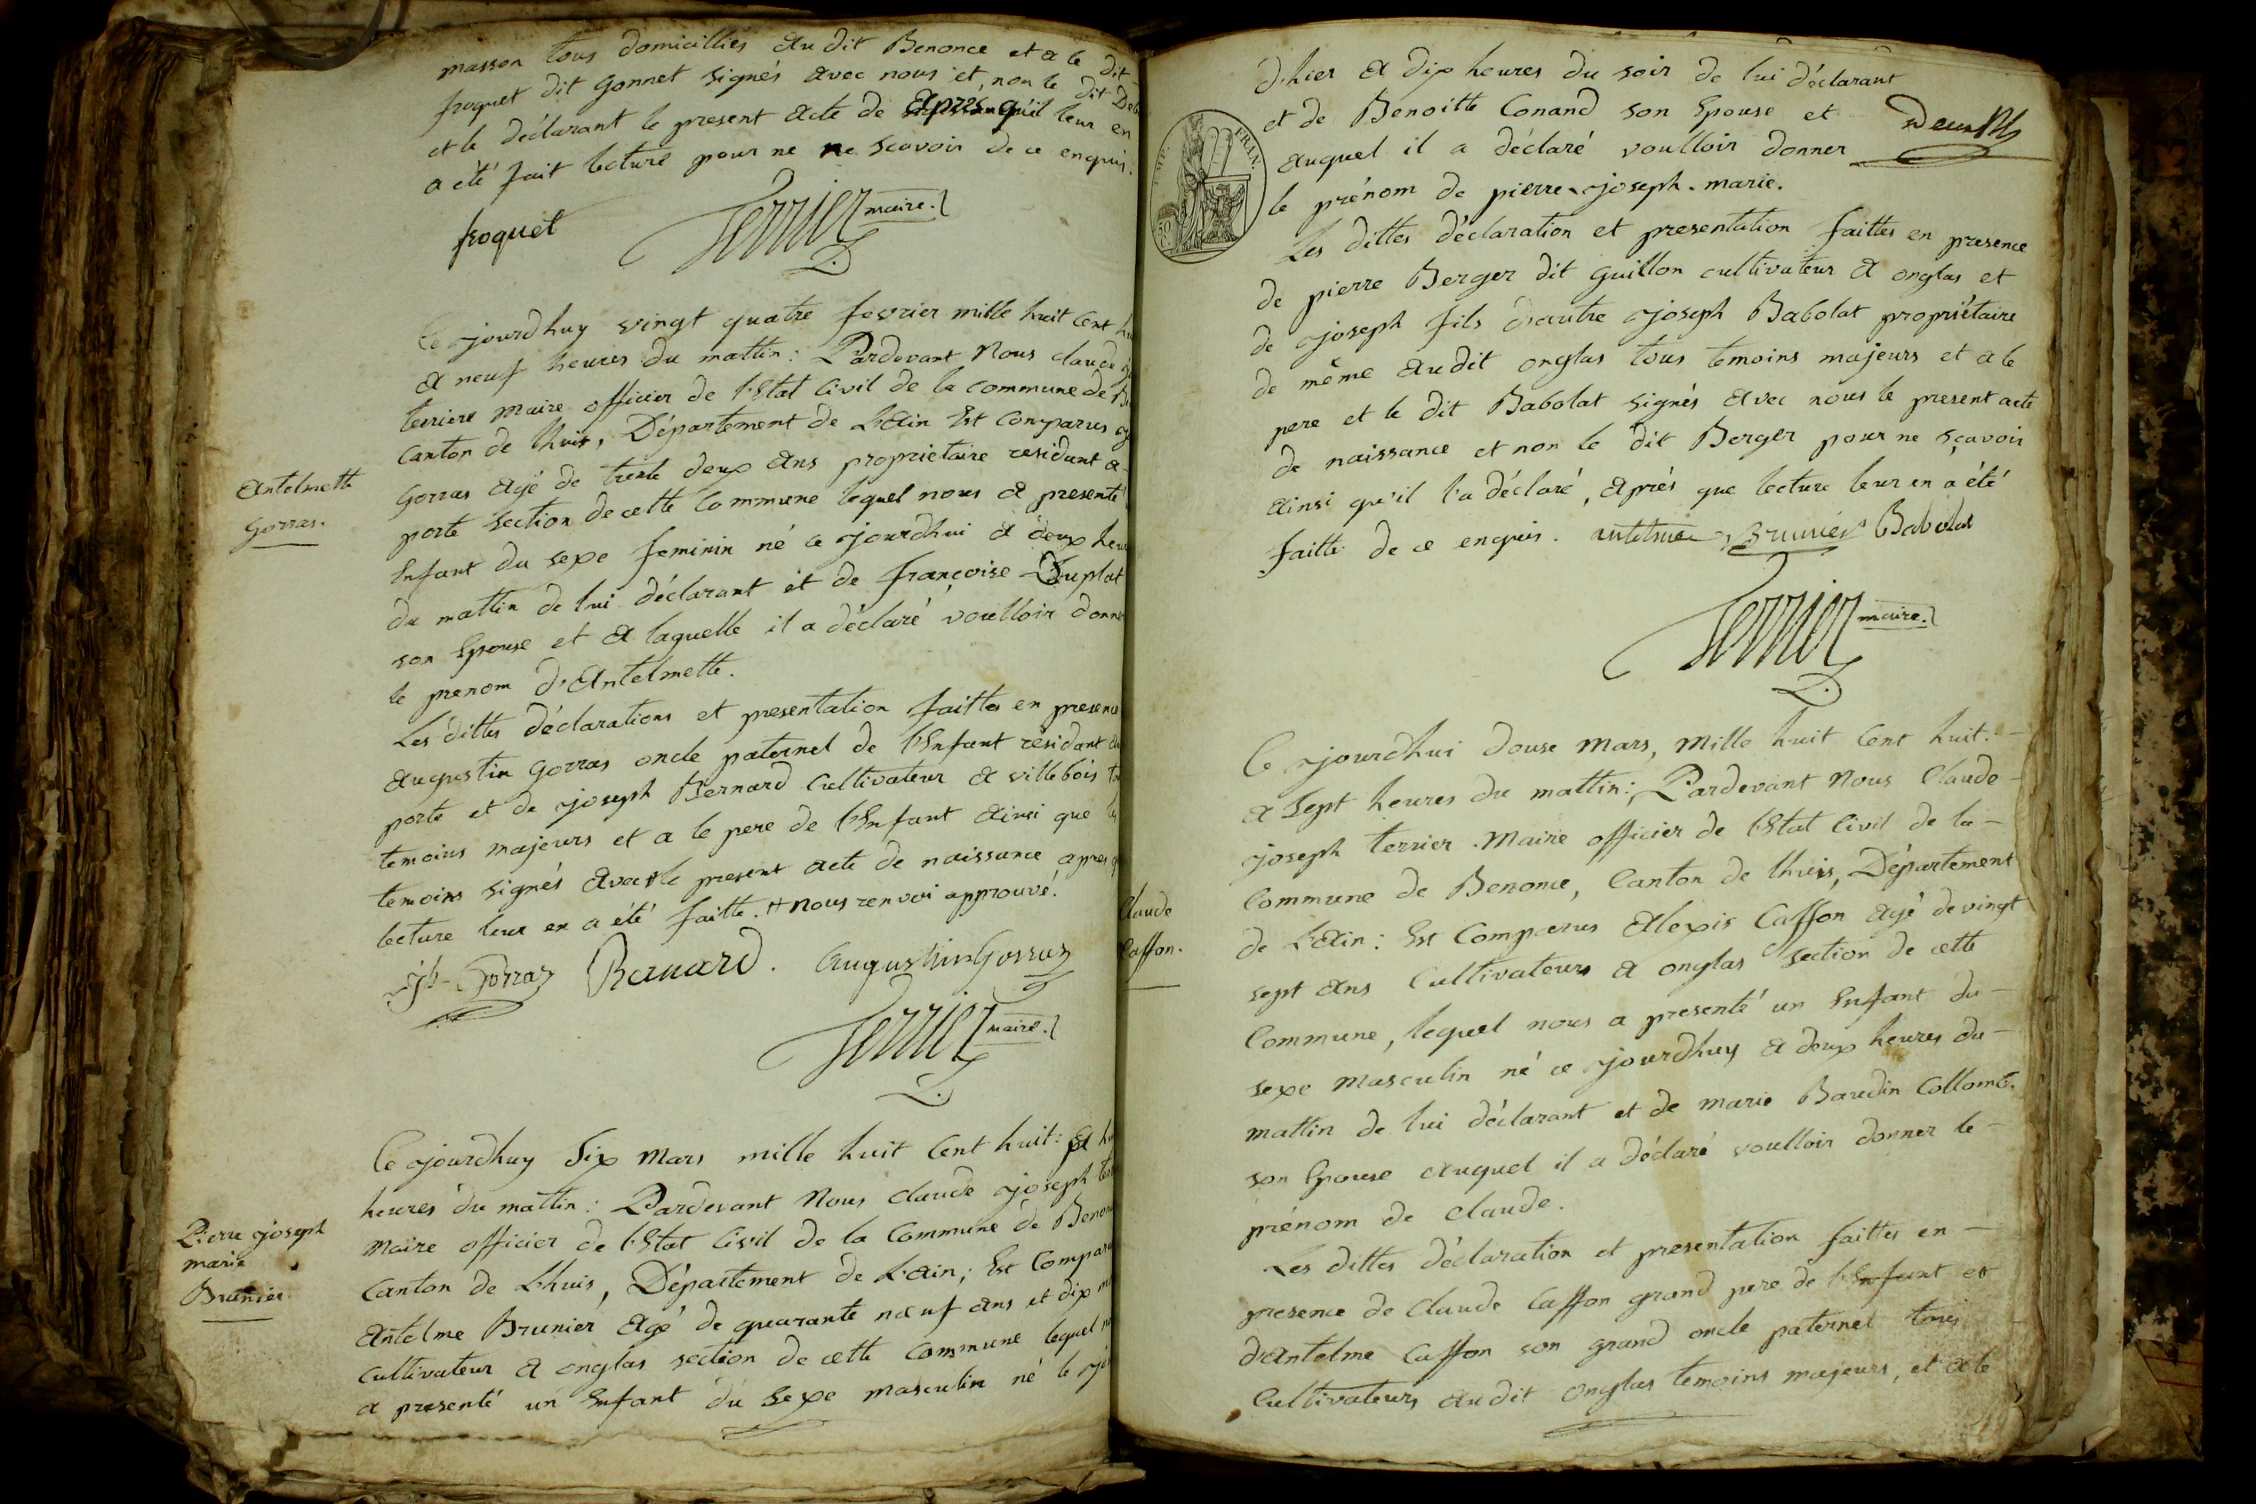 masson tous domicilliés au dit Benonce et a le dit
froquet dit Gonnet signés avec nous et, non le dit
et le déclarant le present acte de après qu'il leur en
a été fait lecture pour ne ne scavoir de ce enquis.
froquet Terrier maire.
Ce jourdhuy vingt quatre fevrier mille huit cent
a neuf heures du mattin: Pardevant Nous claude
terrier Maire officier de l'Etat Civil de la commune de
Canton de lhuis, Département de L'ain Est Comparus
Gorras agé de trente deux ans proprietaire residant a
porte section de cette Commune lequel nous a presenté
Enfant du sexe feminin né ce jourdhui a deux
du mattin de lui déclarant et de françoise Duplat
son Epouse et a laquelle il a déclaré voulloir
le prenom d'Antelmette.
Antelmette
Gorras.
Les dittes déclarations et presentation faittes en presence
augustin gorras oncle paternel de l'Enfant résidant
porte et de joseph Bernard Cultivateur a villebois
temoins majeurs et a le pere de l'Enfant ainsi que
temoins signés avec le present acte de naissance apres
lecture leur en a été faitte. # nous renvoi approuvé.
jh Gorraz Bernard. augustin Gorraz
Terrier maire.
Ce jourdhuy Six Mars mille huit Cent huit: a
heures du mattin: Pardevant Nous claude joseph
Maire officier de l'Etat Civil de la Commune de
Canton de L'huis, Département de L'ain; Est
Antelme Brunier agé de quarante neuf ans et dix
cultivateur a onglas section de cette commune lequel
a presenté un Enfant du Sexe masculin né le
Pierre joseph
marie
Brunier
d'hier a dix heures du soir de lui déclarant
et de Benoitte Conand son Epouse et
auquel il a déclaré voulloir donner
le prénom de pierre joseph. marie.
IMP. FRAN.
Les dittes déclaration et presentation faittes en presence
de pierre Berger dit guillon cultivateur a onglas et
de joseph fils d'autre joseph Babolat propriétaire
de même audit onglas tous temoins majeurs et a le
pere et le dit Babolat signés avec nous le present acte
de naissance et non le dit Berger pour ne sçavoir
ainsi qu'il l'a déclaré, après que lecture leur en a été
faitte de ce enquis. antelme Brunier Babolat
Terrier maire.
Ce jourdhui douse Mars, Mille huit Cent huit.
a Sept heures du mattin; Pardevant Nous Claude
joseph terrier. Maire officier de l'Etat Civil de la
Commune de Benonce, Canton de lhuis, Département
de L'ain: Est Comparus Alexis Caffon agé de vingt
sept ans Cultivateurs a onglas section de cette
Commune, lequel nous a presenté un Enfant du
sexe Masculin né ce jourdhuy a deux heures du
mattin de lui déclarant et de marie Baudin Collomb.
son Epouse auquel il a déclaré voulloir donner le
prénom de claude.
Claude
Caffon.
Les dittes déclaration et presentation faittes en
presence de Claude Caffon grand pere de l'Enfant et
d'Antelme Caffon son grand oncle paternel tous
Cultivateurs audit onglas temoins majeurs, et a le